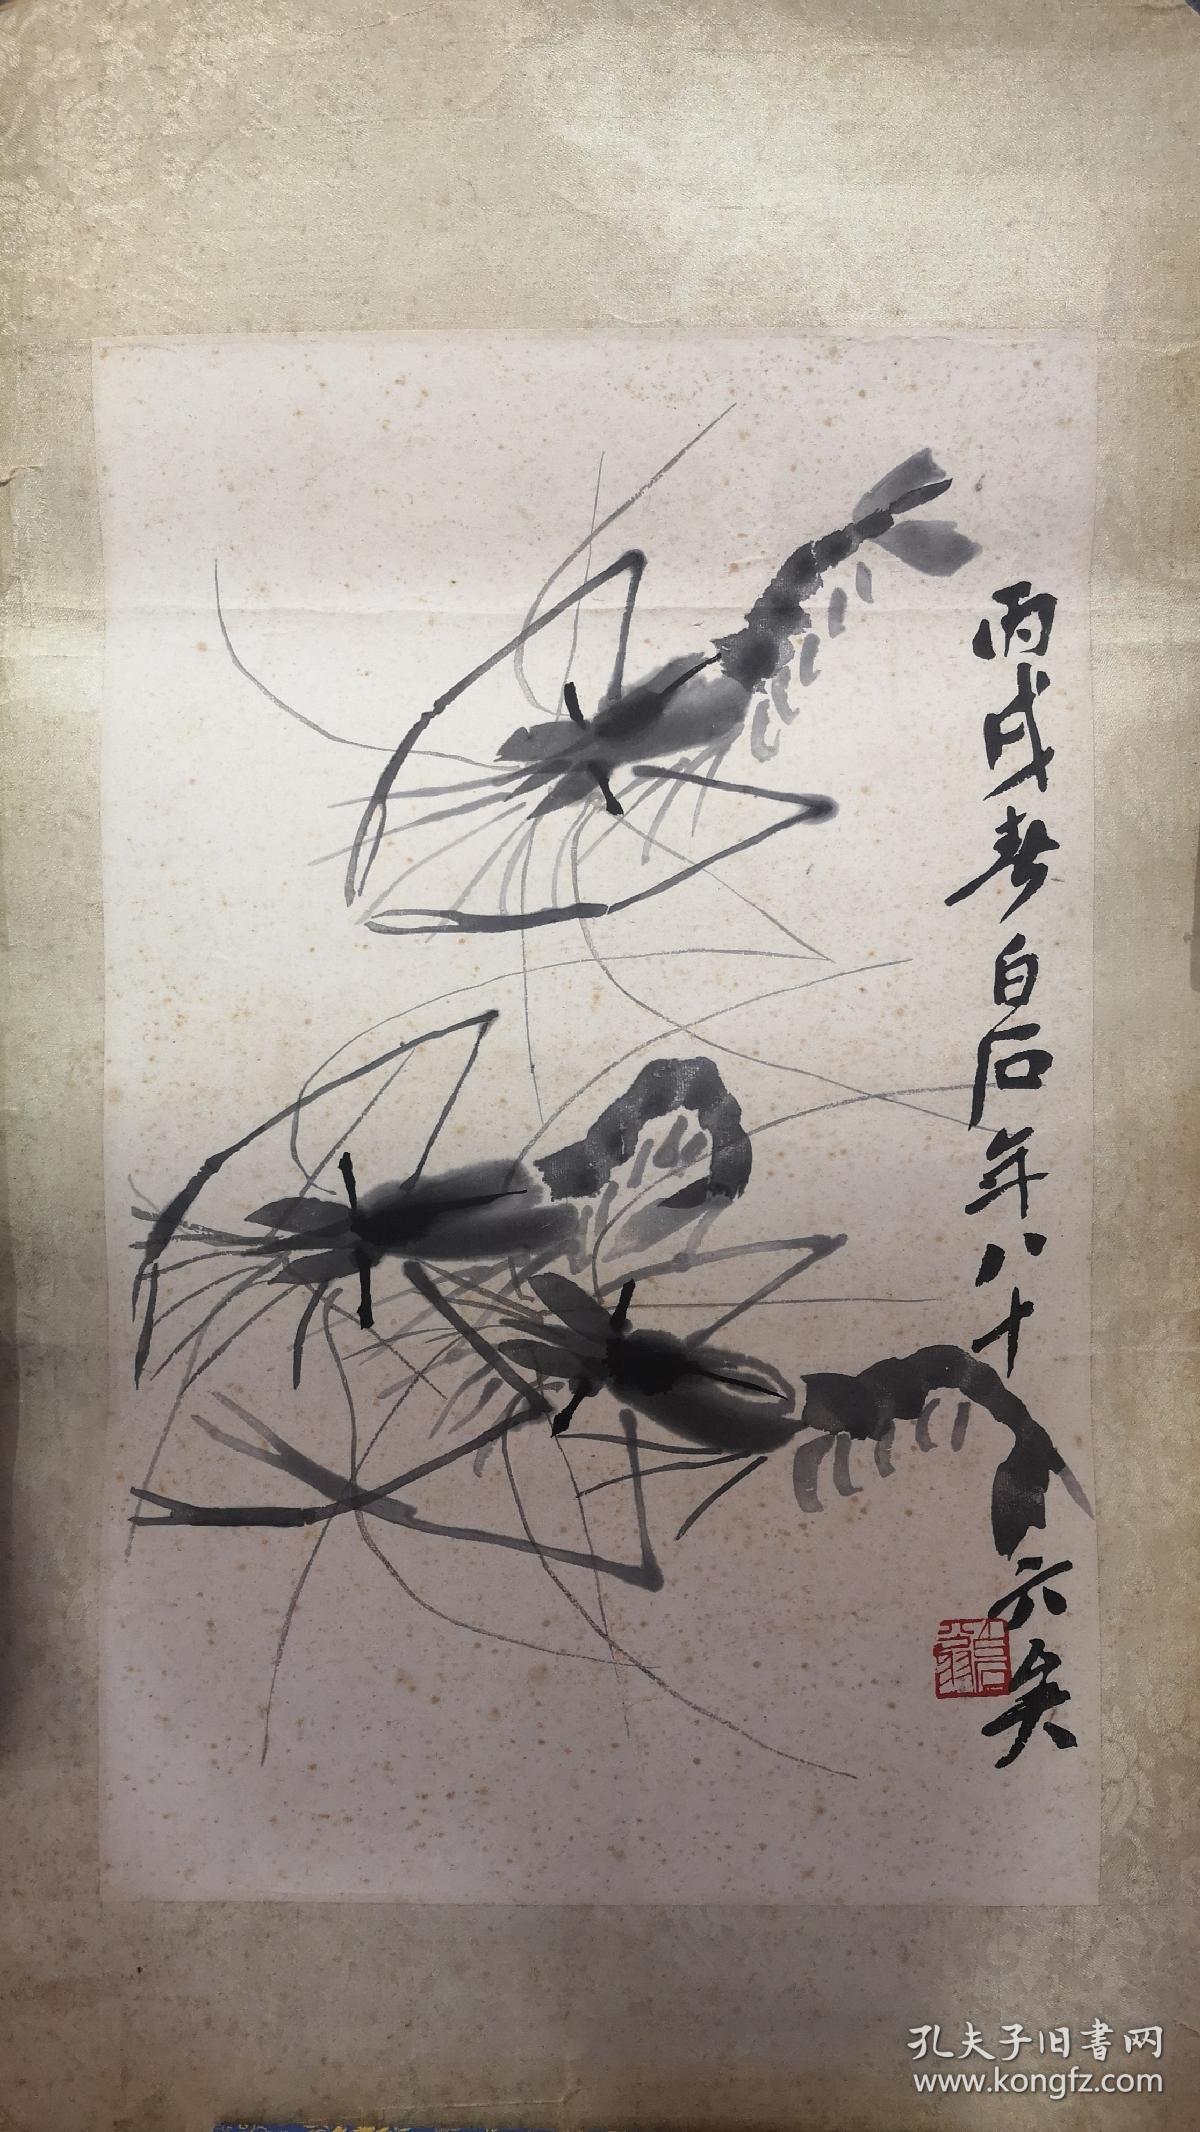 丙戌春白石年八十六矣
孔夫子旧書网
www.kongfz.com